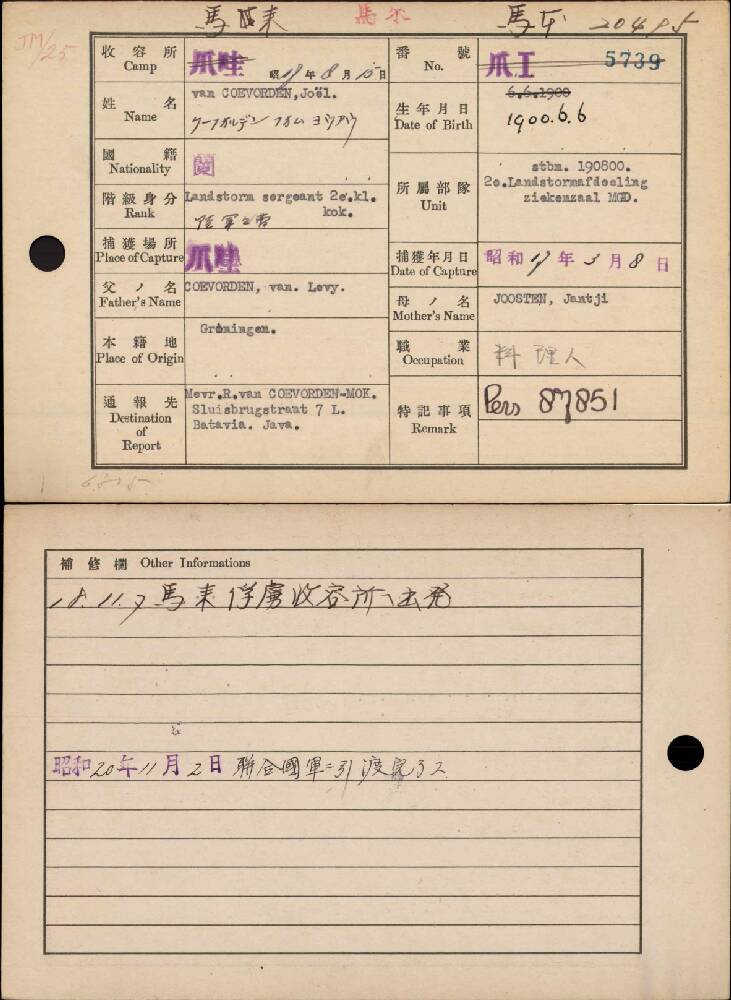 馬来
馬来
馬本 20485
JM/25
收容所
Camp
爪哇
昭17年8月15日
番號
No.
爪I 5739
姓名
Name
van COEVORDEN, Joël.
生年月日
Date of Birth
6.6.1900
1900.6.6
國籍
Nationality
蘭
階級身分
Rank
Landstorm sergeant 2e.kl.
kok.
所屬部隊
Unit
stbn. 190800.
2e.Landstormafdeeling
ziekenzaal MGD.
捕獲場所
Place of Capture
爪哇
捕獲年月日
Date of Capture
昭和17年3月8日
父ノ名
Father's Name
COEVORDEN, van. Levy.
母ノ名
Mother's Name
JOOSTEN, Jantji
本籍地
Place of Origin
Groningen.
職業
Occupation
料理人
通報先
Destination
of
Report
Mevr.R.van COEVORDEN-MOK.
Sluisbrugstraat 7 L.
Batavia. Java.
特記事項
Remark
Pers 87851
補修欄 Other Informations
18.11.7 馬来俘虜收容所へ出発
昭和20年11月2日 聯合國軍ニ引渡完了ス